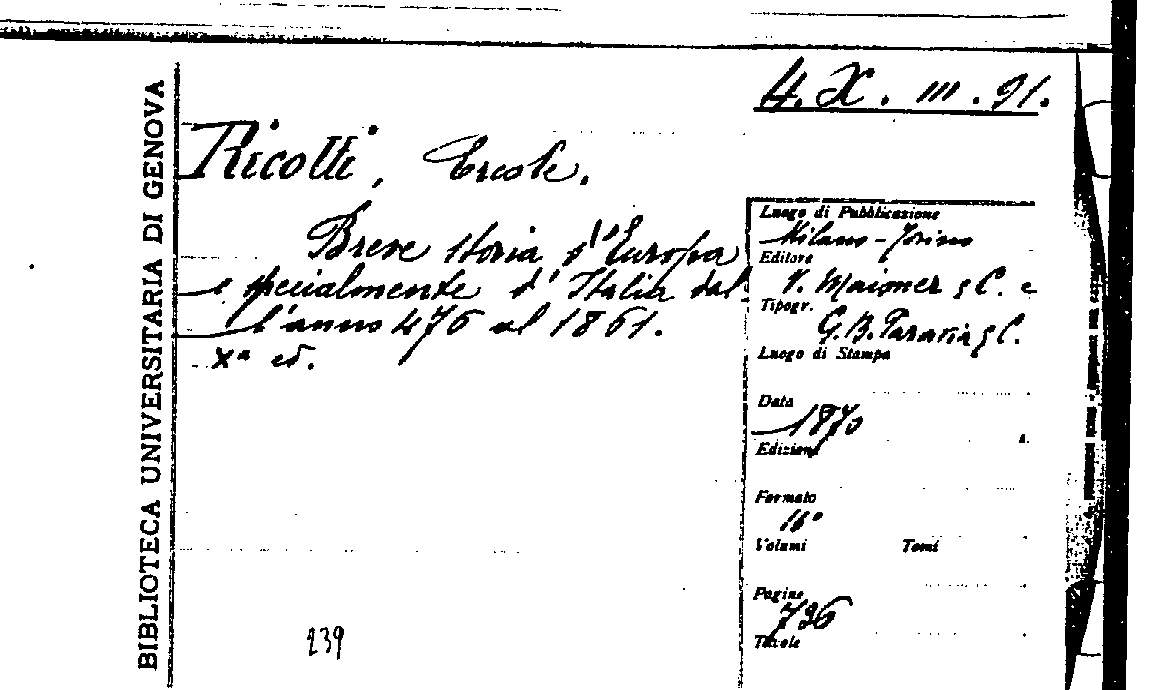 4. X. III. 91.
BIBLIOTECA UNIVERSITARIA DI GENOVA
Ricotti, Ercole.
Breve storia d'Europa
e specialmente d'Italia dal-
l'anno 476 al 1861.
Xª ed.
239
Luogo di Pubblicazione
Milano - Torino
Editore
V. Maisner e C. e
Tipogr.
G. B. Paravia e C.
Luogo di Stampa
Data
1870
Edizione
Formato
16°
Volumi Tomi
Pagine
736
Tavole